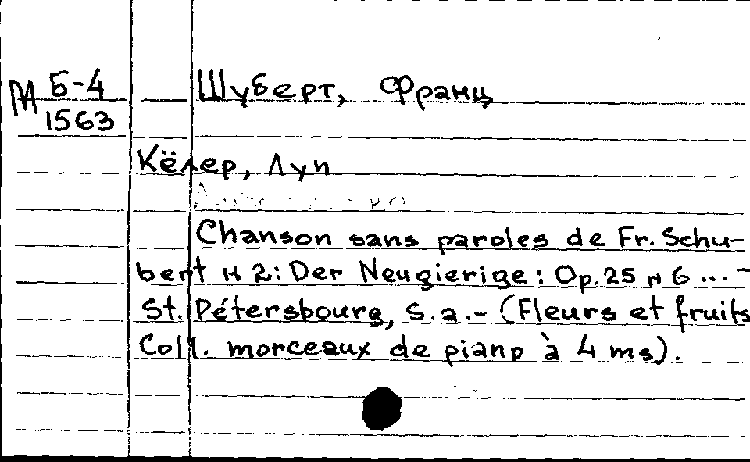 М Б-4 Шуберт, Франц
1563
Кёлер, Луи
Chanson sans paroles de Fr. Schu-
bert N 2: Der Neugierige: Op. 25 N 6 ... -
St. Pétersbourg, S.a. - (Fleurs et fruits
Coll. morceaux de piano à 4 ms).